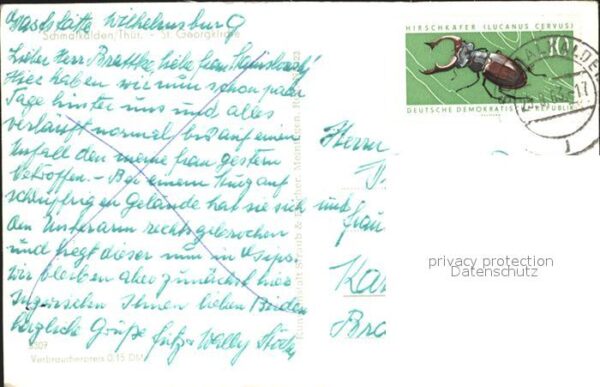 Gaststätte Wilhelmsburg
Schmalkalden, Thür. - St. Georgkirche
Lieber Herr liebe frau
Hier haben wir nun schon paar
Tage hinter uns und alles
verläuft normal bis auf einen
Unfall den meine frau gestern
betroffen. - Bei einem auf
schlüpfrigen Gelände hat sie sich
den Unterarm rechts gebrochen
und liegt dieser nun in Gips.
Wir bleiben aber zunächst hier
Inzwischen Ihnen lieben Beiden
herzliche Grüße fritz u Wally
Verbraucherpreis 0,15 DM
HIRSCHKÄFER (LUCANUS CERVUS)
DEUTSCHE DEMOKRATISCHE REPUBLIK
ALKALDEN
Herrn
und
frau
privacy protection
Datenschutz